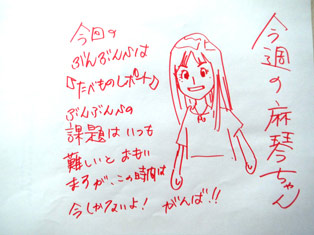 今週の麻琴ちゃん
今回の
ぶんぶんぶは
『たべものレポート』
ぶんぶんぶの
課題はいつも
難しいとおもい
ますが、この時間は
今しかないよ! がんば!!